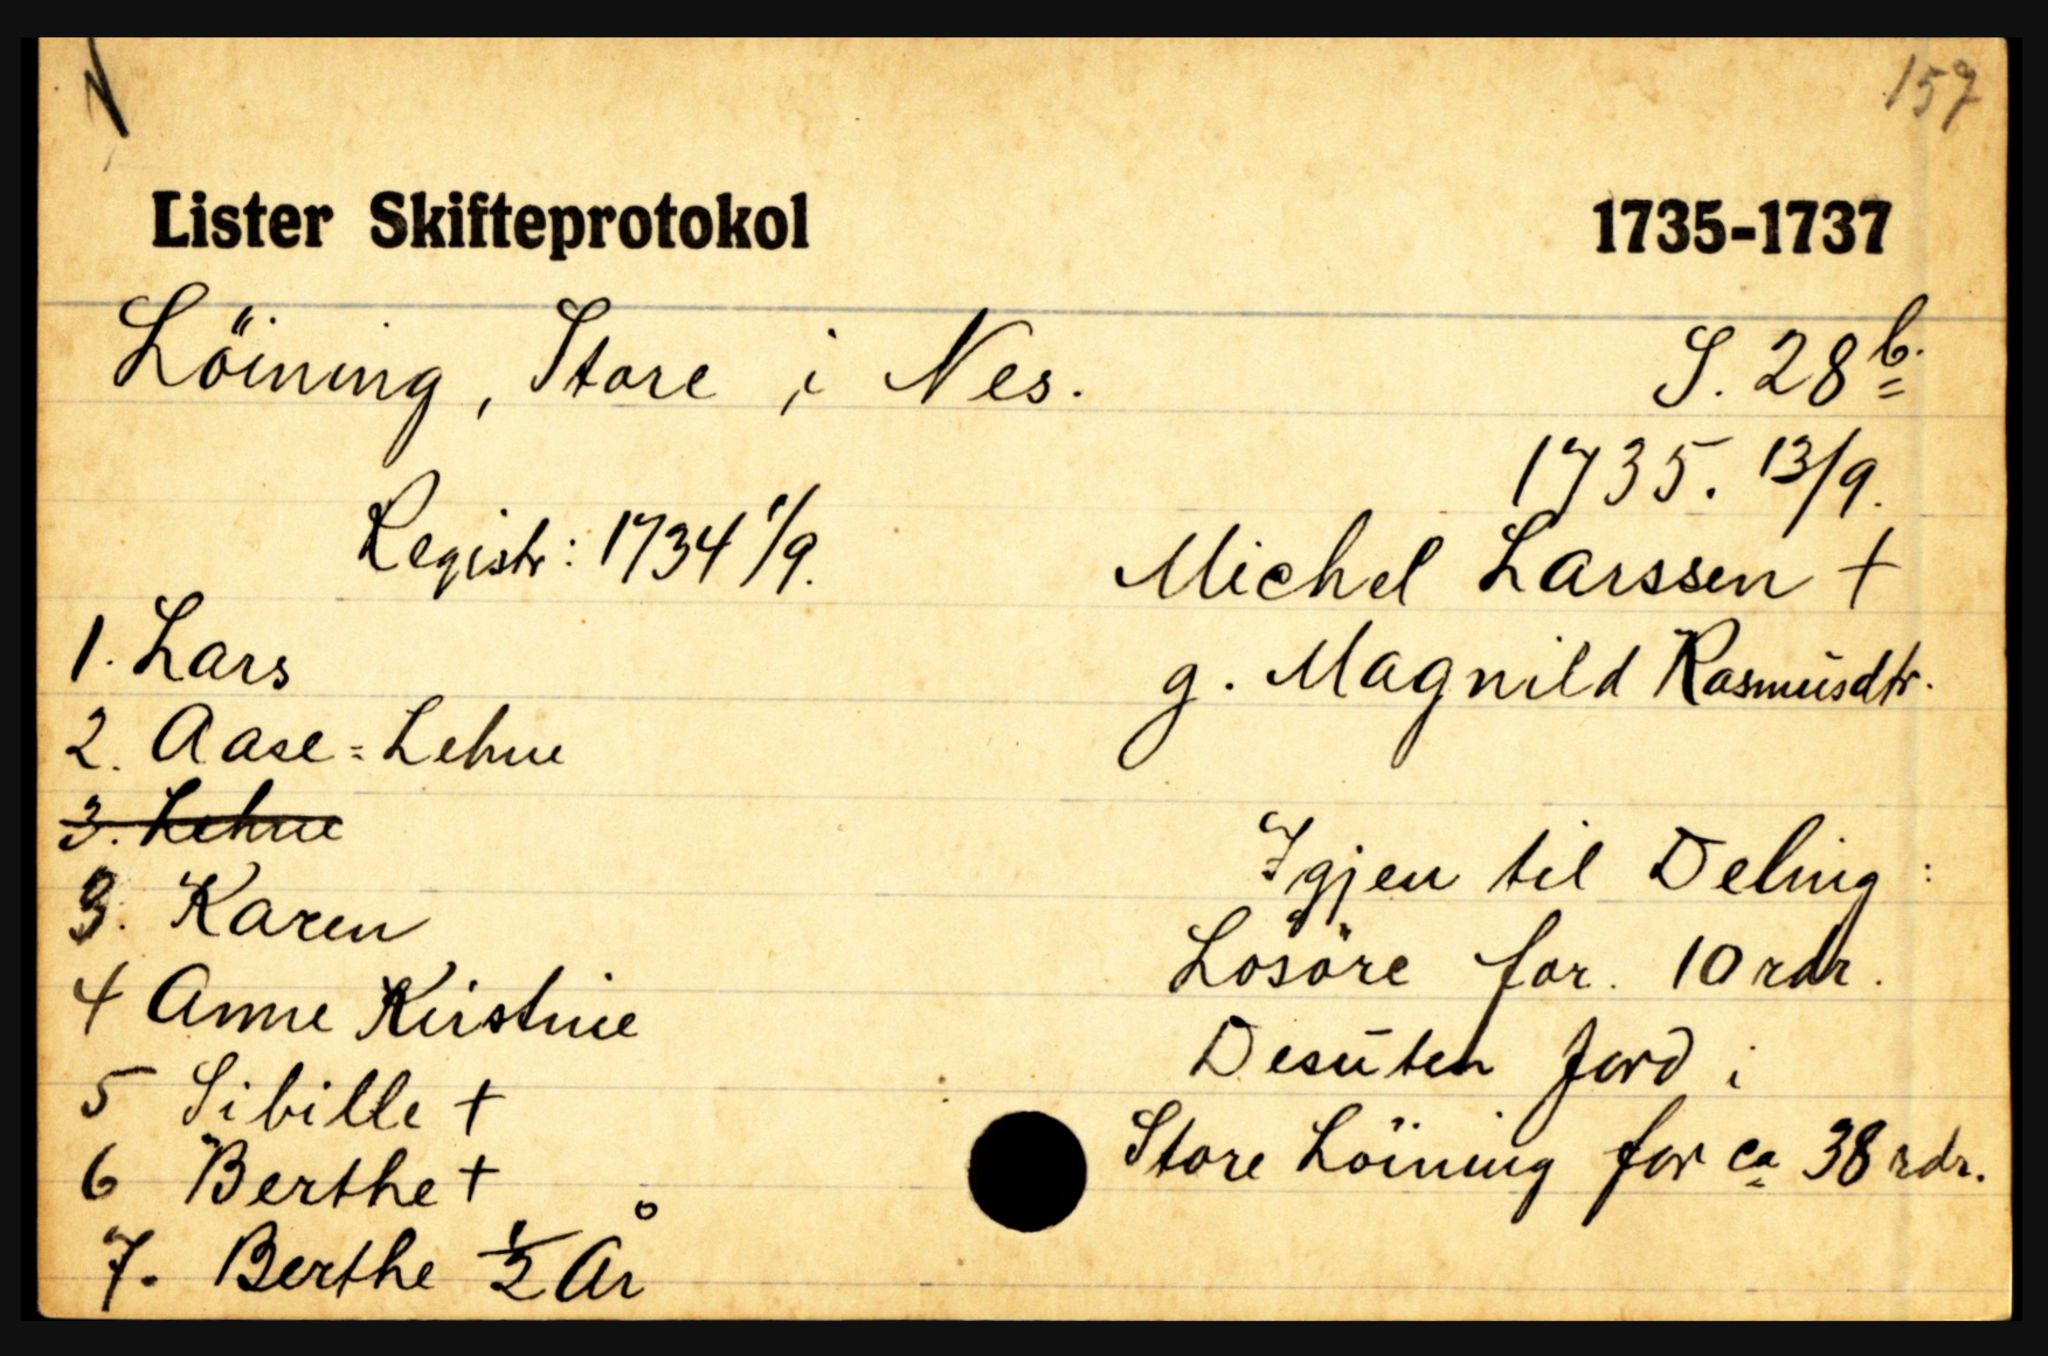 157
Lister Skifteprotokol 1735-1737
Löining, Store i Nes. S. 28b.
1735. 13/9.
Registr: 1734 1/9.
Michel Larssen +
g. Magnild Rasmusdtr.
1. Lars
2. Aase=Lehne
3. Lehne
3. Karen
4 Anne Kirstine
5 Sibille +
6 Berthe +
7. Berthe 1/2 År
Igjen til Deling:
Lösöre for. 10 rdr.
Desuten Jord i
Store Löining for ca 38 rdr.